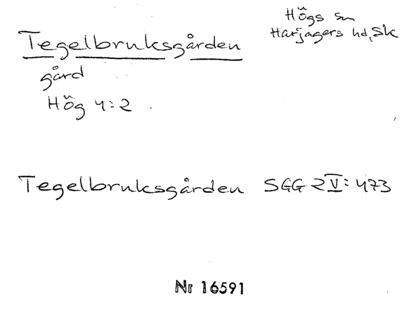 Högs sn
Harjagers hd, Sk
Tegelbruksgården
gård
Hög 4:2
Tegelbruksgården SGG 2 V: 473
Nr 16591